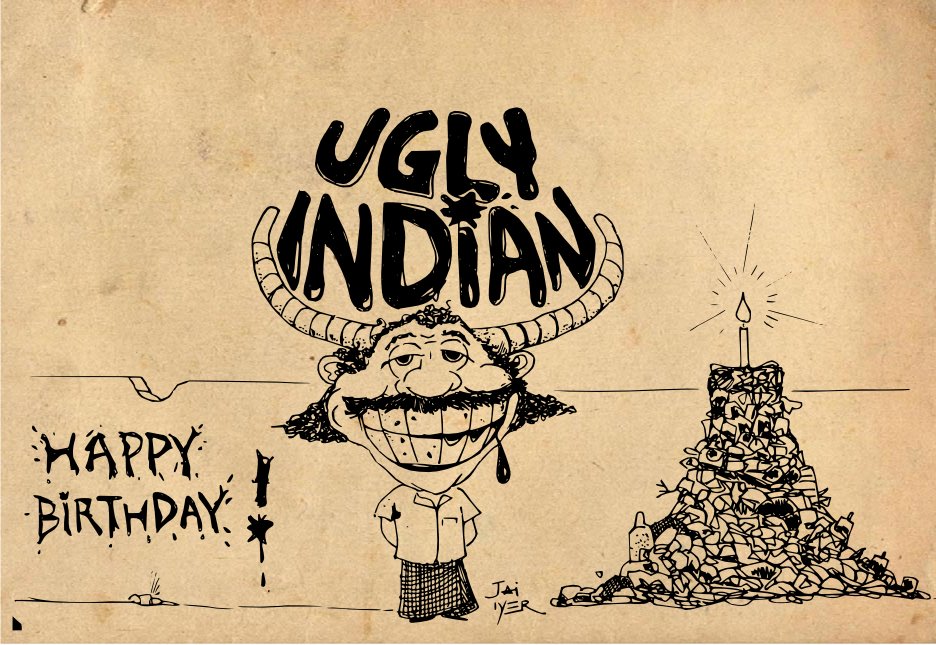 UGLY
INDIAN
HAPPY
BIRTHDAY!
JAi
IYER